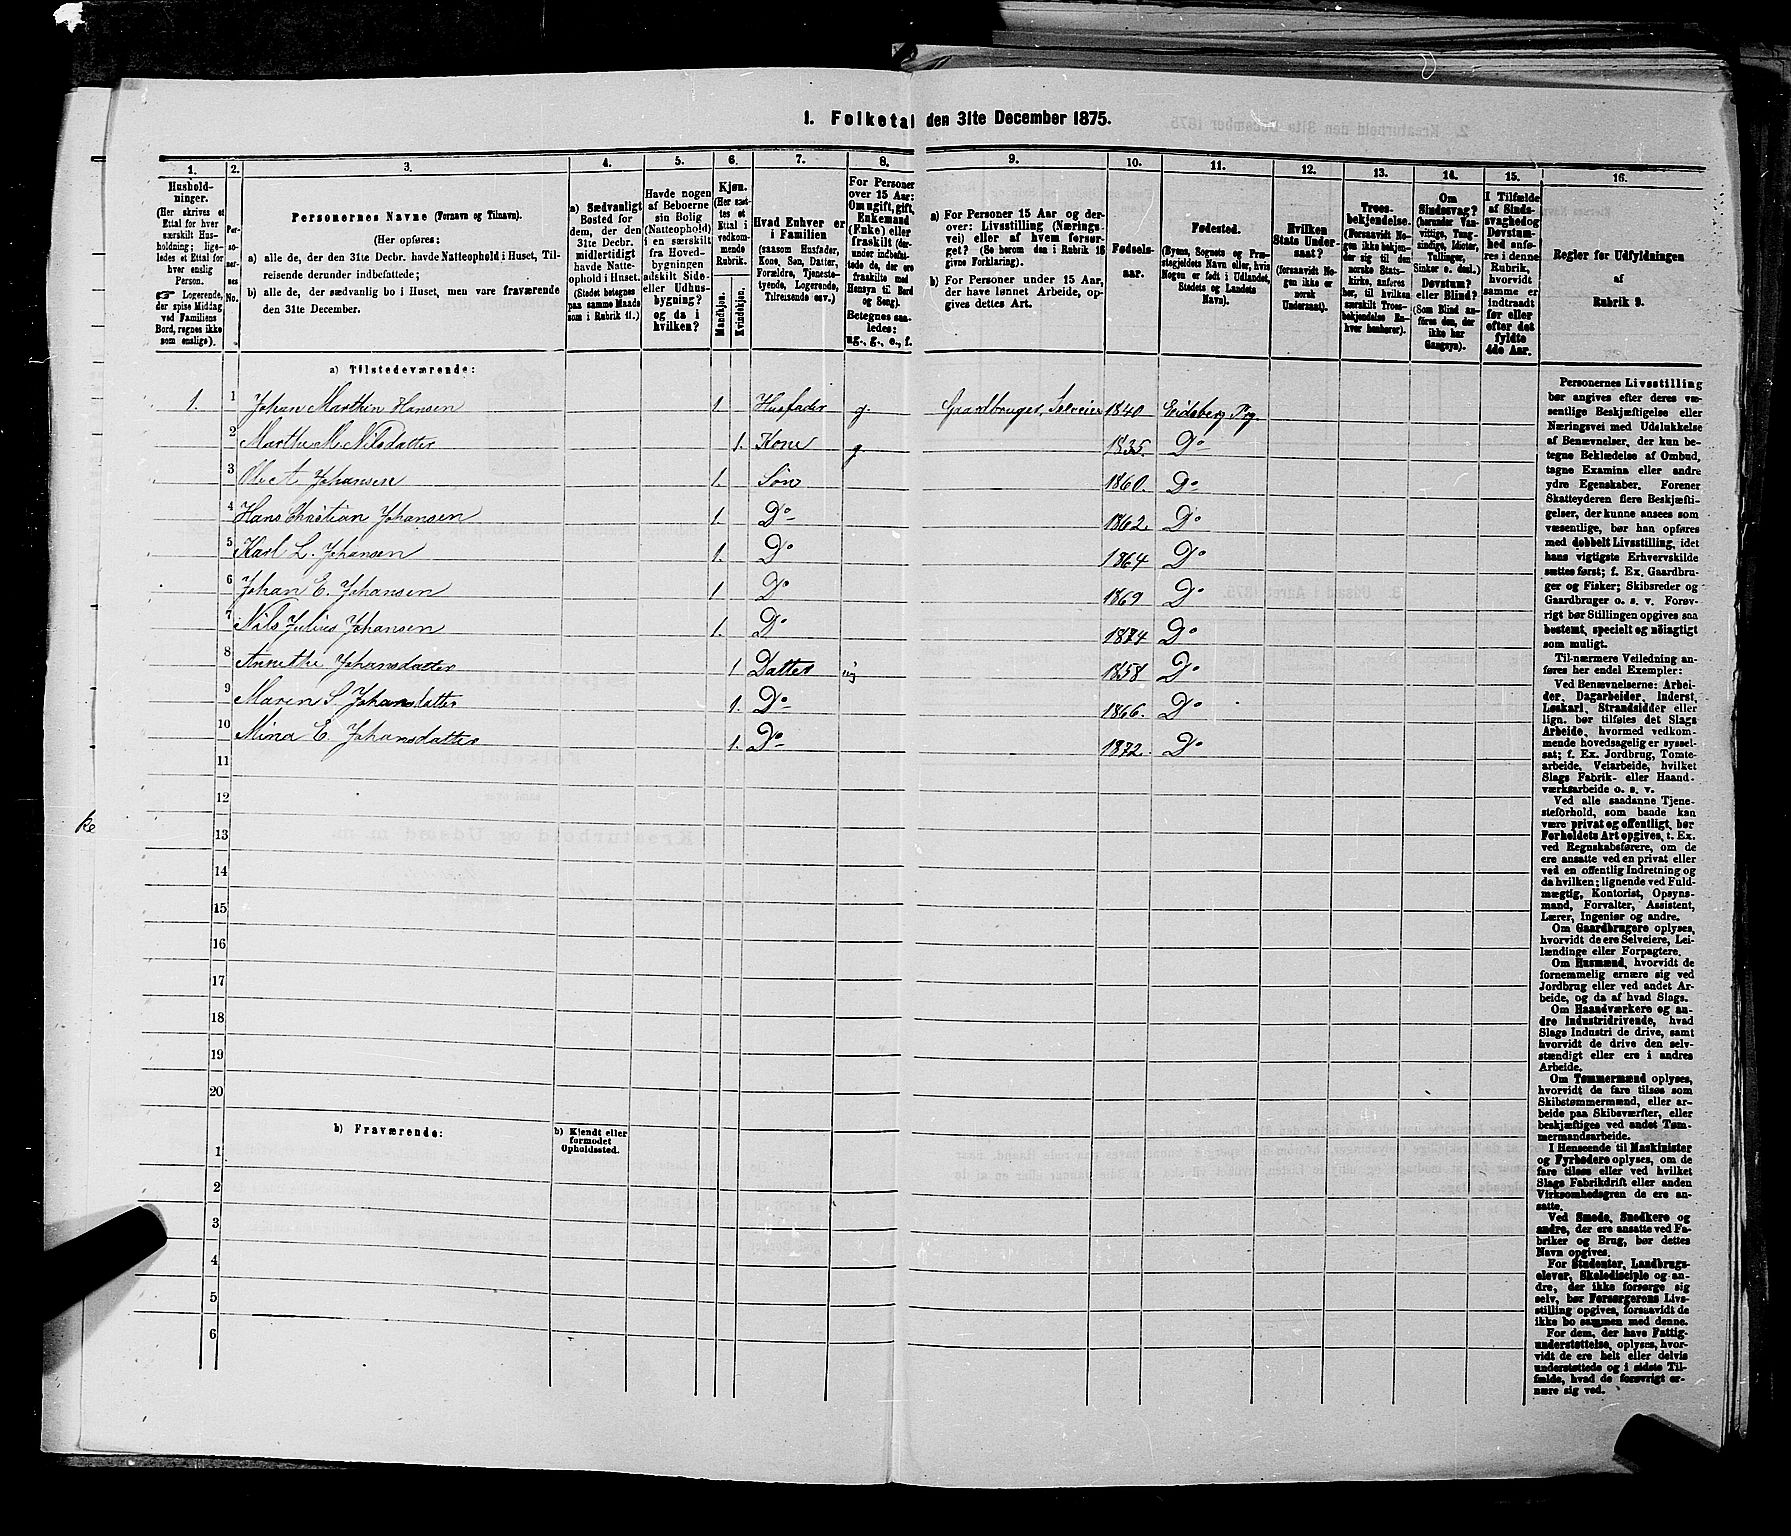 1. Folketal den 31te December 1875.
1. 2. 3. 4. 5. 6. 7. 8. 9. 10. 11. 12. 13. 14. 15. 16.
Hushold-
ninger.
(Her skrives et
Ettal for hver
særskilt Hus-
holdning; lige-
ledes et Ettal for
hver enslig
Person.
☞ Logerende,
der spise Middag
ved Familiens
Bord, regnes ikke
som enslige).
Per-
so-
ner-
nes
No.
Personernes Navne (Fornavn og Tilnavn).
(Her opføres:
a) alle de, der den 31te Decbr. havde Natteophold i Huset, Til-
reisende derunder indbefattede;
b) alle de, der sædvanlig bo i Huset, men vare fraværende
den 31te December.
a) Sædvanligt
Bosted for
dem, der den
31te Decbr.
midlertidigt
havde Natte-
ophold i Huset.
(Stedet betegnes
paa samme Maade
som i Rubrik 11.)
Havde nogen
af Beboerne
sin Bolig
(Natteophold)
i en særskilt
fra Hoved-
bygningen
adskilt Side-
eller Udhus-
bygning?
og da i
hvilken?
Kjøn.
(Her sæt-
tes et
Ettal i
vedkom-
mende
Rubrik.
Mandkjøn.
Kvindekjøn.
Hvad Enhver er
i Familien
(saasom Husfader,
Kone, Søn, Datter,
Forældre, Tjeneste-
tyende, Logerende,
Tilreisende osv.)
For Personer
over 15 Aar:
Om ugift, gift,
Enkemand
(Enke) eller
fraskilt (der-
under indbefat-
tede de, der ere
fraskilte med
Hensyn til Bord
og Seng).
Betegnes saa-
ledes:
ug., g., e., f.
a) For Personer 15 Aar og der-
over: Livsstilling (Nærings-
vei) eller af hvem forsør-
get? (Se herom den i Rubrik 16
givne Forklaring).
b) For Personer under 15 Aar,
der have lønnet Arbeide, op-
gives dettes Art.
Fødsels-
aar.
Fødested.
(Byens, Sognets og Præ-
stegjeldets Navn eller, hvis
Nogen er født i Udlandet,
Stedets og Landets
Navn).
Hvilken
Stats Under-
saat?
(forsaavidt No-
gen ikke er
norsk
Undersaat).
Troes-
bekjendelse.
(Forsaavidt No-
gen ikke bekjen-
der sig til den
norske Stats-
kirke, anføres
her, til hvilken
særskilt Troes-
bekjendelse En-
hver henhører).
Om
Sindssvag?
(herunder Van-
vittige, Tung-
sindige, Idioter,
Tullinger,
Sinker o. desl.)
Døvstum?
eller Blind?
(Som Blind an-
føres den, der
ikke har
Gangsyn).
I Tilfælde
af Sinds-
svaghed og
Døvstum-
hed anfø-
res i denne
Rubrik,
hvorvidt
samme er
indtraadt
før eller
efter det
fyldte
4de Aar.
Regler for Udfyldningen
af
Rubrik 9.
a) Tilstedeværende:
1. 1 Johan Marthin Hansen 1. Husfader g. Gaardbruger, Selveier 1840 Eidsberg Prg.
2 Marthe M. Nilsdatter 1. Kone g 1835. Do
3 Ole A Johansen 1. Søn 1860. Do
4 Hans Christian Johansen 1. Do 1862. Do
5 Karl L. Johansen 1. Do 1864 Do
6 Johan E. Johansen 1 Do 1869 Do
7 Nils Julius Johansen 1. Do 1874 Do
8 Annethe Johansdatter 1 Datter ug 1858 Do
9 Maren S Johansdatter 1. Do 1866. Do
10 Mina E. Johansdatter 1. Do 1872. Do
11
12
13
14
15
16
17
18
19
20
b) Fraværende:
b) Kjendt eller
formodet
Opholdssted.
1
2
3
4
5
6
Personernes Livsstilling
bør angives efter deres væ-
sentlige Beskjæftigelse eller
Næringsvei med Udelukkelse
af Benævnelser, der kun be-
tegne Beklædelse af Ombud,
tagne Examina eller andre
ydre Egenskaber. Forener
Skatteyderen flere Beskjæfti-
gelser, der kunne ansees som
væsentlige, bør han opføres
med dobbelt Livsstilling, idet
hans vigtigste Erhvervskilde
sættes først; f. Ex. Gaardbru-
ger og Fisker; Skibsreder og
Gaardbruger o. s. v. Forøv-
rigt bør Stillingen opgives saa
bestemt, specielt og nöiagtigt
som muligt.
Til nærmere Veiledning an-
føres her endel Exempler:
Ved Benævnelserne: Arbei-
der, Dagarbeider, Inderst,
Løskarl, Strandsidder eller
lign. bør tilføies det Slags
Arbeide, hvormed vedkom-
mende hovedsagelig er syssel-
sat; f. Ex. Jordbrug, Tomte-
arbeide, Veiarbeide, hvilket
Slags Fabrik- eller Haand-
værksarbeide o. s. v.
Ved alle saadanne Tjene-
steforhold, som baade kan
være privat og offentligt, bør
Forholdets Art opgives, t. Ex.
ved Regnskabsførere, om de
ere ansatte ved en privat eller
ved en offentlig Indretning og
da hvilken; lignende ved Fuld-
mægtig, Kontorist, Opsyns-
mand, Forvalter, Assistent,
Lærer, Ingeniør og andre.
Om Gaardbrugere oplyses,
hvorvidt de ere Selveiere, Lei-
lændinge eller Forpagtere.
Om Husmænd, hvorvidt de
fornemmelig ernære sig ved
Jordbrug eller ved andet Ar-
beide, og da af hvad Slags.
Om Haandværkere og an-
dre Industridrivende, hvad
Slags Industri de drive, samt
hvorvidt de drive den selv-
stændigt eller ere i andres
Arbeide.
Om Tømmermænd oplyses,
hvorvidt de fare tilsøs som
Skibstømmermænd, eller ar-
beide paa Skibsværfter, eller
beskjæftiges ved andet Tøm-
mermandsarbeide.
I Henseende til Maskinister
og Fyrbødere oplyses, om de
fare tilsøs eller ved hvilket
Slags Fabrikdrift eller anden
Virksomhedsgren de ere an-
satte.
Ved Smede, Snedkere og
andre, der ere ansatte ved Fa-
briker og Brug, bør dettes
Navn opgives.
For Studenter, Landbrugs-
elever, Skoledisciple og an-
dre, der ikke forsørge sig
selv, bør Forsørgerens Livs-
stilling opgives, forsaavidt de
ikke bo sammen med denne.
For dem, der have Fattig-
understøttelse, oplyses, hvor-
vidt de ere helt eller delvis
understøttede og i sidste Til-
fælde, hvad de forøvrigt er-
nære sig ved.